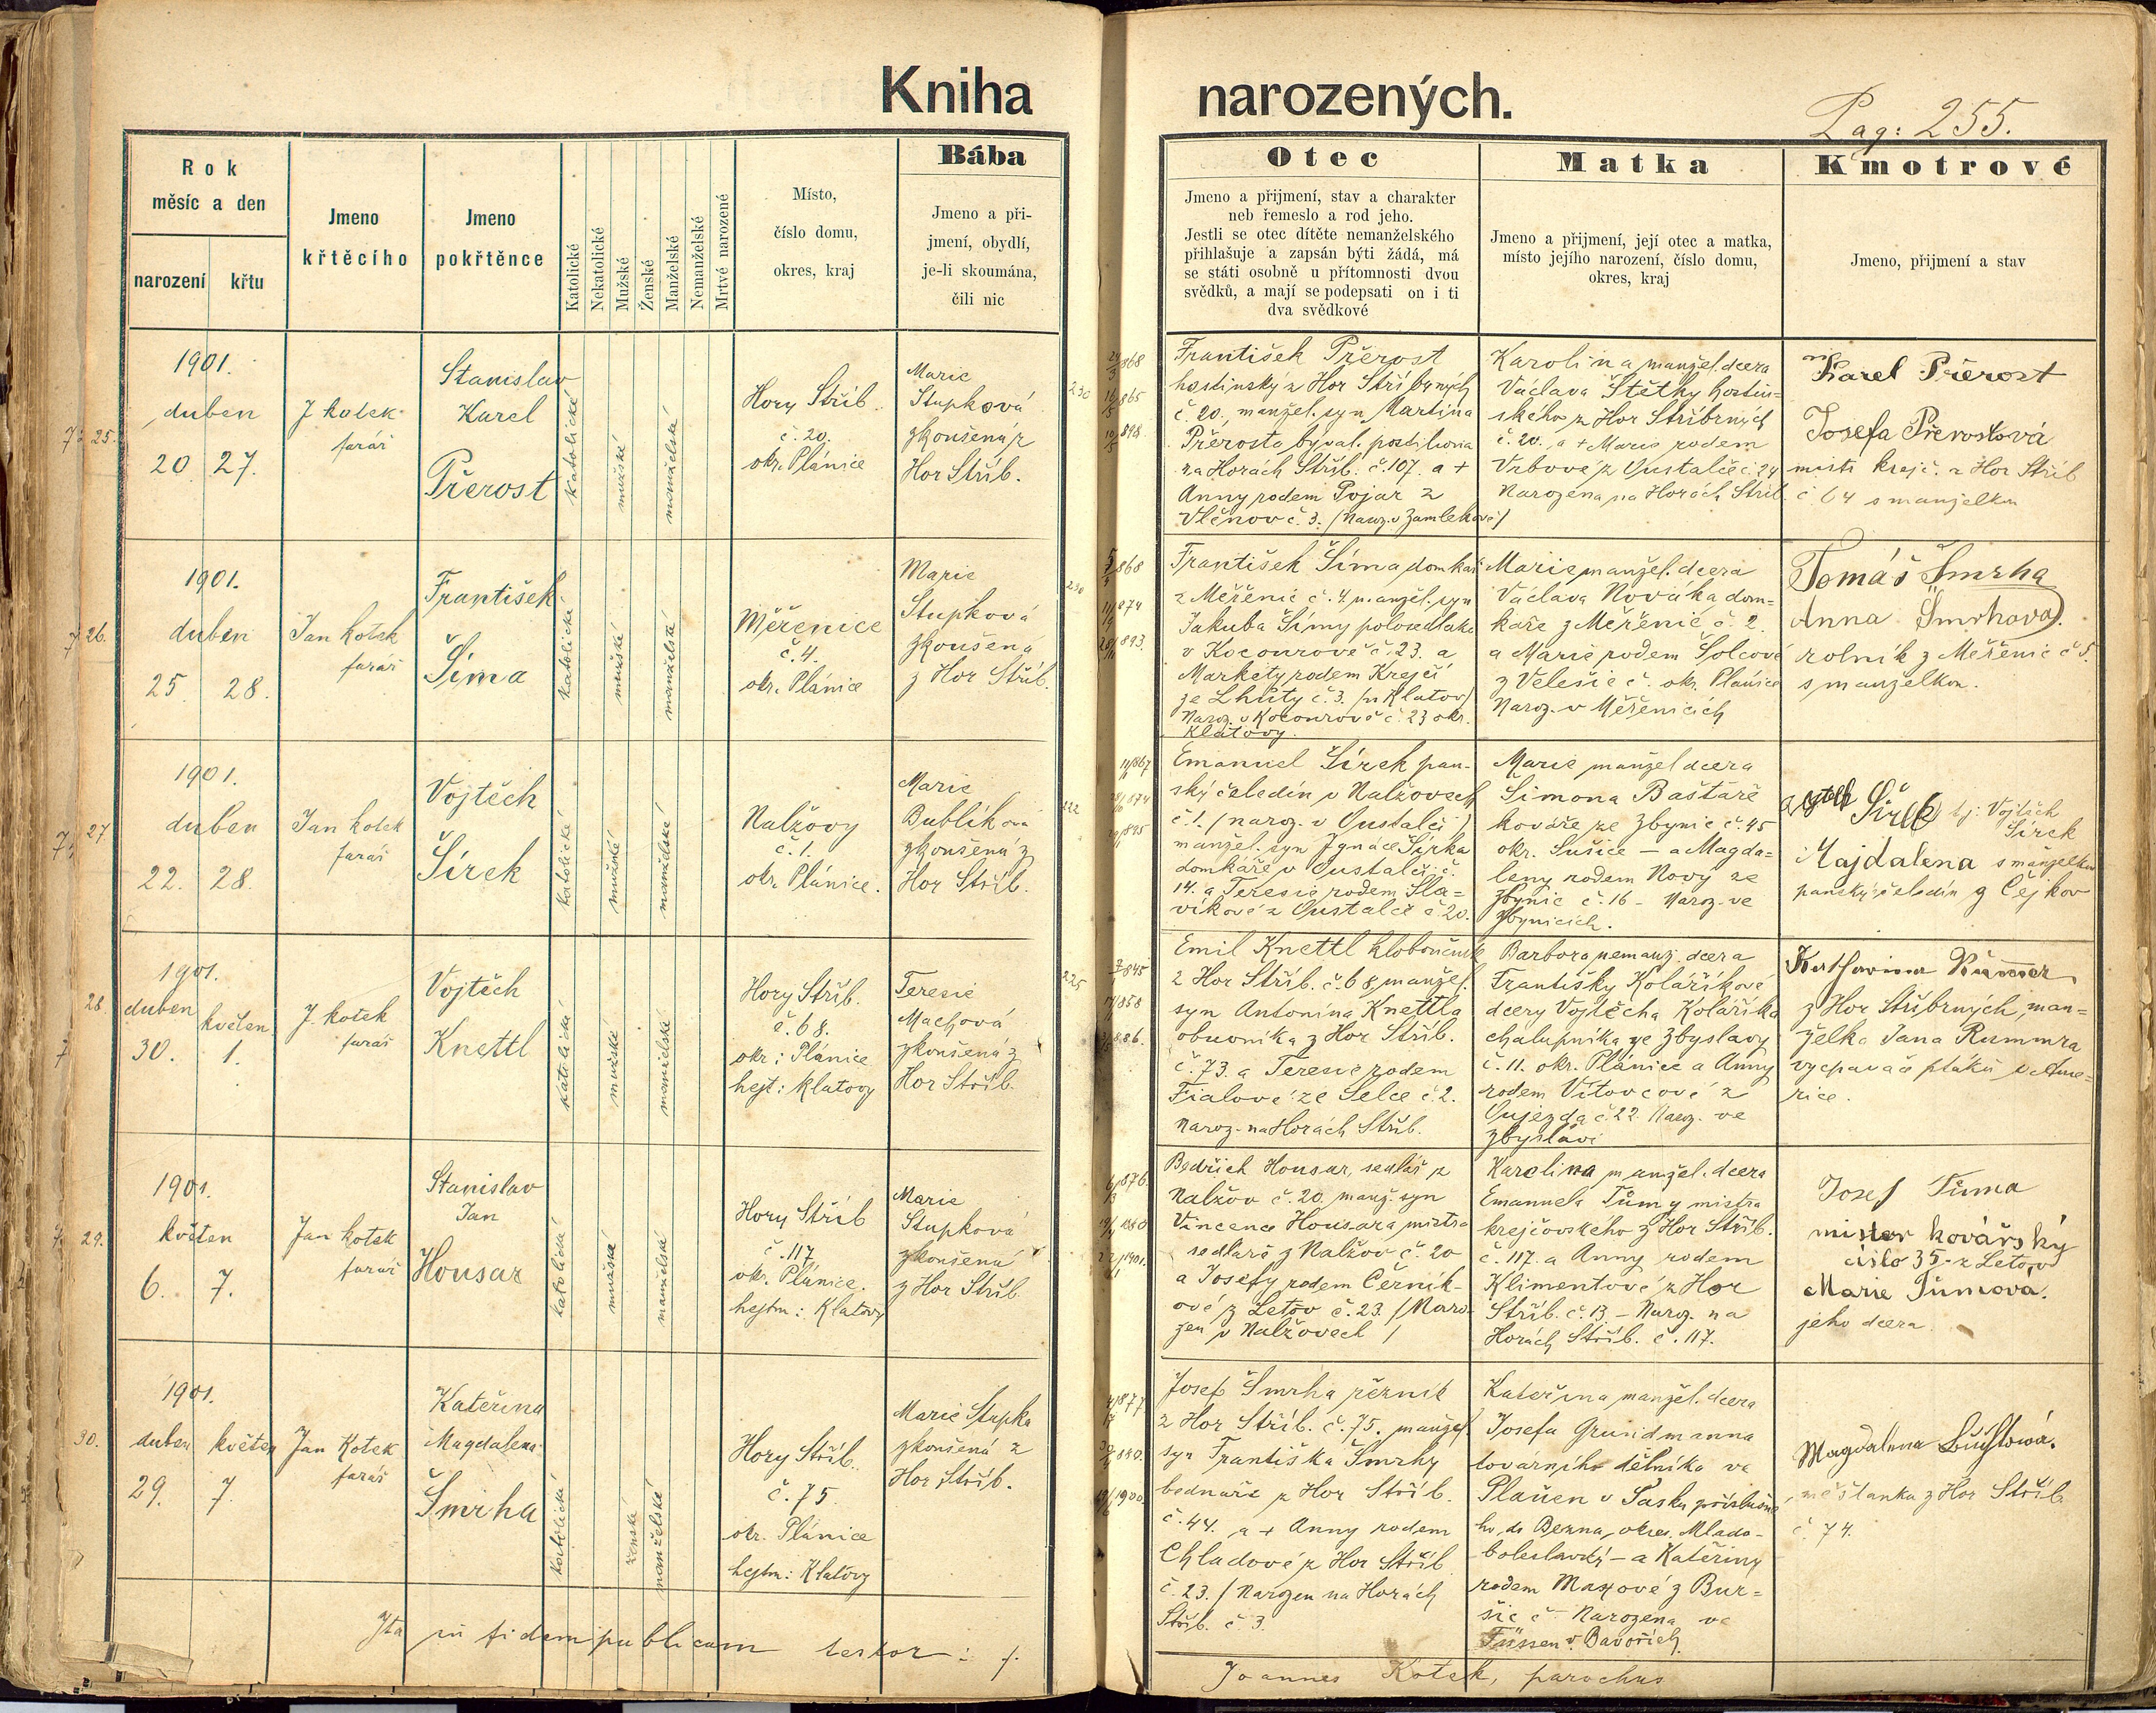 Kniha narozených.
Pag: 255.
Rok
měsíc a den
narození křtu
Jmeno
křtěcího
Jmeno
pokřtěnce
Katolické
Nekatolické
Mužské
Ženské
Manželské
Nemanželské
Mrtvé narozené
Místo,
číslo domu,
okres, kraj
Bába
Jmeno a při-
jmení, obydlí,
je-li skoumána,
čili nic
Otec
Jmeno a přijmení, stav a charakter
neb řemeslo a rod jeho.
Jestli se otec dítěte nemanželského
přihlašuje a zapsán býti žádá, má
se státi osobně u přítomnosti dvou
svědků, a mají se podepsati on i ti
dva svědkové
Matka
Jmeno a přijmení, její otec a matka,
místo jejího narození, číslo domu,
okres, kraj
Kmotrové
Jmeno, přijmení a stav
25.
1901.
duben
20 27.
J Kotek
farář
Stanislav
Karel
Přerost
katolické
mužské
manželské
Hory Stříb.
č. 20.
okr. Plánice
Marie
Stupková
zkoušená z
Hor Stříb.
230
František Přerost
hostinský z Hor Stříbrných
č. 20. manžel. syn Martina
Přerosta býval. postiliona
na Horách Stříb. č. 107. a +
Anny rodem Pojar z
Vlčnov č. 3. /Naroz. v Zamlekově/
Karolina manžel. dcera
Václava Štětky hostin-
ského z Hor Stříbrných
č. 20. a + Marie rodem
Vrbové z Oustalče č. 24
Narozena na Horách Stříb.
Karel Přerost
Josefa Přerostová
mistr krejč. z Hor Stříb
č 64 s manželkou
26.
1901.
duben
25 28.
Jan Kotek
farář
František
Šíma
katolické
mužské
manželské
Měřenice
č. 4.
okr. Plánice
Marie
Stupková
zkoušena
z Hor Stříb.
230
František Šíma domkář
z Měřenic č. 4. manžel. syn
Jakuba Šímy polosedláka
v Kocourově č. 23. a
Markéty rodem Krejčí
ze Lhůty č. 3. /u Klatov/
Naroz. v Kocourově č. 23 okr.
Klatovy.
Marie manžel. dcera
Václava Nováka dom=
káře z Měřenic č. 2.
a Marie rodem Šolcové
z Velešic č. okr. Plánice
Naroz. v Měřenicích
Tomáš Šmrha
Anna Šmrhová.
rolník z Měřenic č 5.
s manželkou.
27.
1901.
duben
22. 28.
Jan Kotek
farář
Vojtěch
Šírek
katolické
mužské
manželské
Nalžovy
č. 1.
okr. Plánice.
Marie
Bublíková
zkoušená z
Hor Stříb.
222
Emanuel Šírek pan-
ský čeledín v Nalžovech
č. 1. /naroz. v Oustalči/
manžel. syn Ignáce Šírka
domkáře v Oustalči č.
14. a Teresie rodem Sla=
víkové z Oustalče č 20.
Marie manžel dcera
Šimona Baštáře
kováře ze Zbynic č. 45
okr. Sušice — a Magda=
leny rodem Nový ze
Zbynic č. 16 - Naroz. ve
Zbynicích.
Šírek tj: Vojtěch
Šírek
Majdalena s manželkou
panský čeledín z Čejkov
28
1901.
duben květen
30. 1.
J. Kotek
farář
Vojtěch
Knettl
katolické
mužské
manželské
Hory Stříb.
č. 68.
okr: Plánice
hejt: Klatovy
Teresie
Machová
zkoušená z
Hor Stříb.
225
Emil Knettl kloboučník
z Hor Stříb. č. 68, manžel.
syn Antonína Knettla
obuvníka z Hor Stříb.
č. 73. a Teresie rodem
Fialové ze Selce č. 2.
Naroz. na Horách Stříb.
Barbora nemanž. dcera
Františky Kolaříkové
dcery Vojtěcha Kolaříka
chalupníka ze Zbyslavy
č. 11. okr. Plánice a Anny
rodem Vítovcové z
Oujezda č 22. Naroz. ve
Zbyslavi
z Hor Stříbrných, man=
želka Jana Rummra
vycpavače ptáků v Ame=
rice.
29.
1901.
květen
6. 7.
Jan Kotek
farář
Stanislav
Jan
Housar
katolické
mužské
manželské
Hory Stříb
č. 117
okr. Plánice.
hejtm: Klatovy
Marie
Stupková
zkoušená
z Hor Stříb
Bedřich Housar, sedlář z
Nalžov č. 20. manž. syn
Vincence Housara, mistra
sedláře z Nalžov č. 20
a Josefy rodem Černík-
ové z Letov č. 23. /Naro-
zen v Nalžovech/
Karolina manžel. dcera
Emanuela Tůmy mistra
krejčovského z Hor Stříb.
č. 117. a Anny rodem
Klimentové z Hor
Stříb. č. 13. - Naroz. na
Horách Stříb. č. 117.
Josef Tůma
mistr kovářský
číslo 35. z Letov
Marie Tůmová.
jeho dcera.
30.
1901.
duben květen
29. 7.
Jan Kotek
farář
Kateřina
Magdalena
Šmrha
katolické
ženské
manželské
Hory Stříb.
č. 75.
okr. Plánice
hejtm: Klatovy
Marie Stupka
zkoušená z
Hor Stříb.
Josef Šmrha řezník
z Hor Stříb. č. 75. manžel
syn Františka Šmrhy
bednáře z Hor Stříb.
č. 44. a + Anny rodem
Chladové z Hor Stříb
č. 23. /Narozen na Horách
Stříb. č 3.
Kateřina manžel. dcera
Josefa Grundmanna
továrního dělníka ve
Plauen v Sasku příslušné-
ho do Bezna, okres. Mlado-
boleslavský - a Kateřiny
rodem Maxové z Bur=
šic č Narozena ve
Füssen v Bavořích.
Magdalena
měšťanka z Hor Stříb.
č. 74.
Ita in fidem publicam testor: /.
Joannes Kotek, parochus